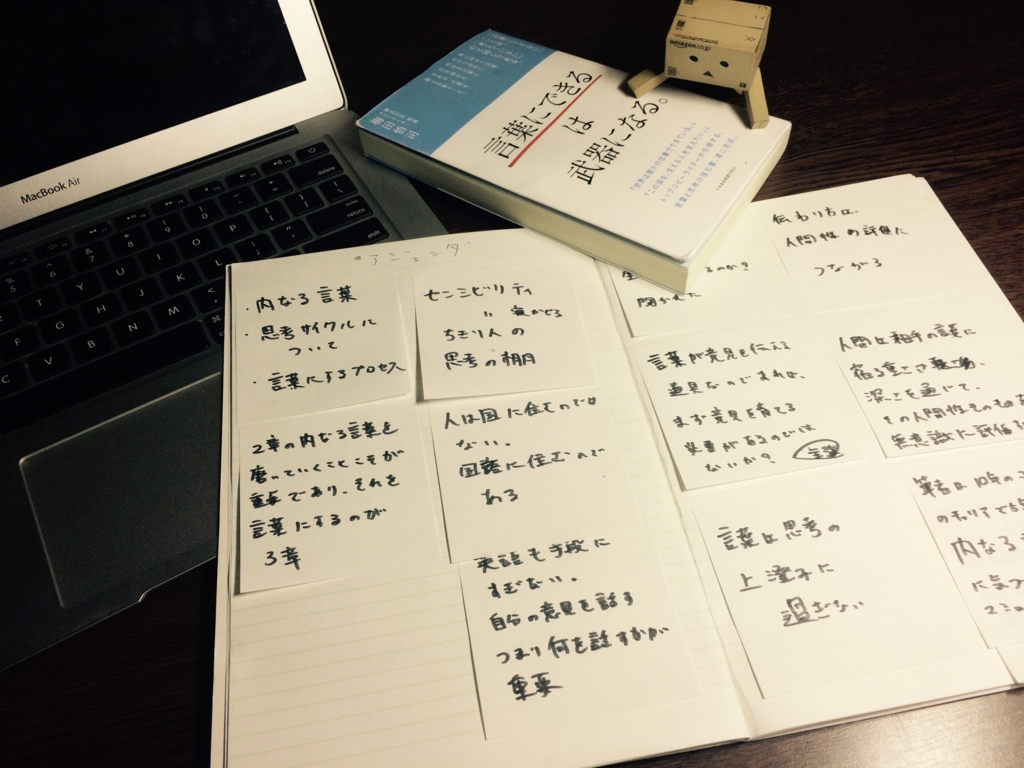 MacBook Air
amazon.co.jp
言葉にできる
は
武器になる。
「世界は誰かの仕事でできている。」
「この国を、支える人を支えたい。」
トップコピーライターが伝授する、
言葉と思考の強化書、遂に完成。
梅田悟司
アジェンダ
・内なる言葉
・思考サイクルに
ついて
・言葉にするプロセス
2章の内なる言葉を
磨いていくことこそが
重要であり、それを
言葉にするのが
3章
センシビリティ
思考の棚
人は国に住むのでは
ない。
国語に住むので
ある
英語も手段に
すぎない。
自分の意見を話す
つまり何を話すかが
重要
伝わり方は、
人間性の評価に
つながる
のか?
開かれた
言葉が意見を伝える
道具なのであれば、
まず意見を育てる
必要があるのでは
ないか?
人間は相手の言葉に
宿る重さや
深さを通じて、
その人間性そのものを
無意識に評価
言葉は思考の
上澄みに
過ぎない
筆者は
内なる
に気づ
delete
return
shift